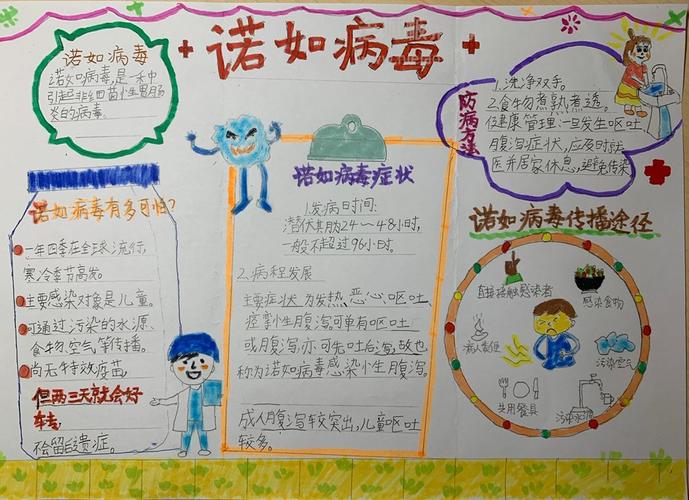 诺如病毒
诺如病毒
诺如病毒,是一种
引起非细菌性胃肠
炎的病毒.
防病方法
1.洗净双手。
2.食物煮熟煮透。
健康管理:一旦发生呕吐
腹泻症状,应及时就
医并居家休息,避免传染
诺如病毒有多可怕?
一年四季在全球流行,
寒冷季节高发。
主要感染对象是儿童。
可通过污染的水源、
食物、空气等传播。
尚无特效疫苗,
但两三天就会好
转,
不会留后遗症。
诺如病毒症状
1.发病时间:
潜伏其月为24~48小时,
一般不超过96小时。
2.病程发展
主要症状为发热、恶心、呕吐、
痉挛性腹泻。可单有呕吐
或腹泻,亦可先吐后泻,故也
称为诺如病毒感染小生腹泻。
成人腹泻较突出,儿童呕吐
较多。
诺如病毒传播途径
直接接触感染者
感染食物
病人粪便
污染空气
共用餐具
污染水源